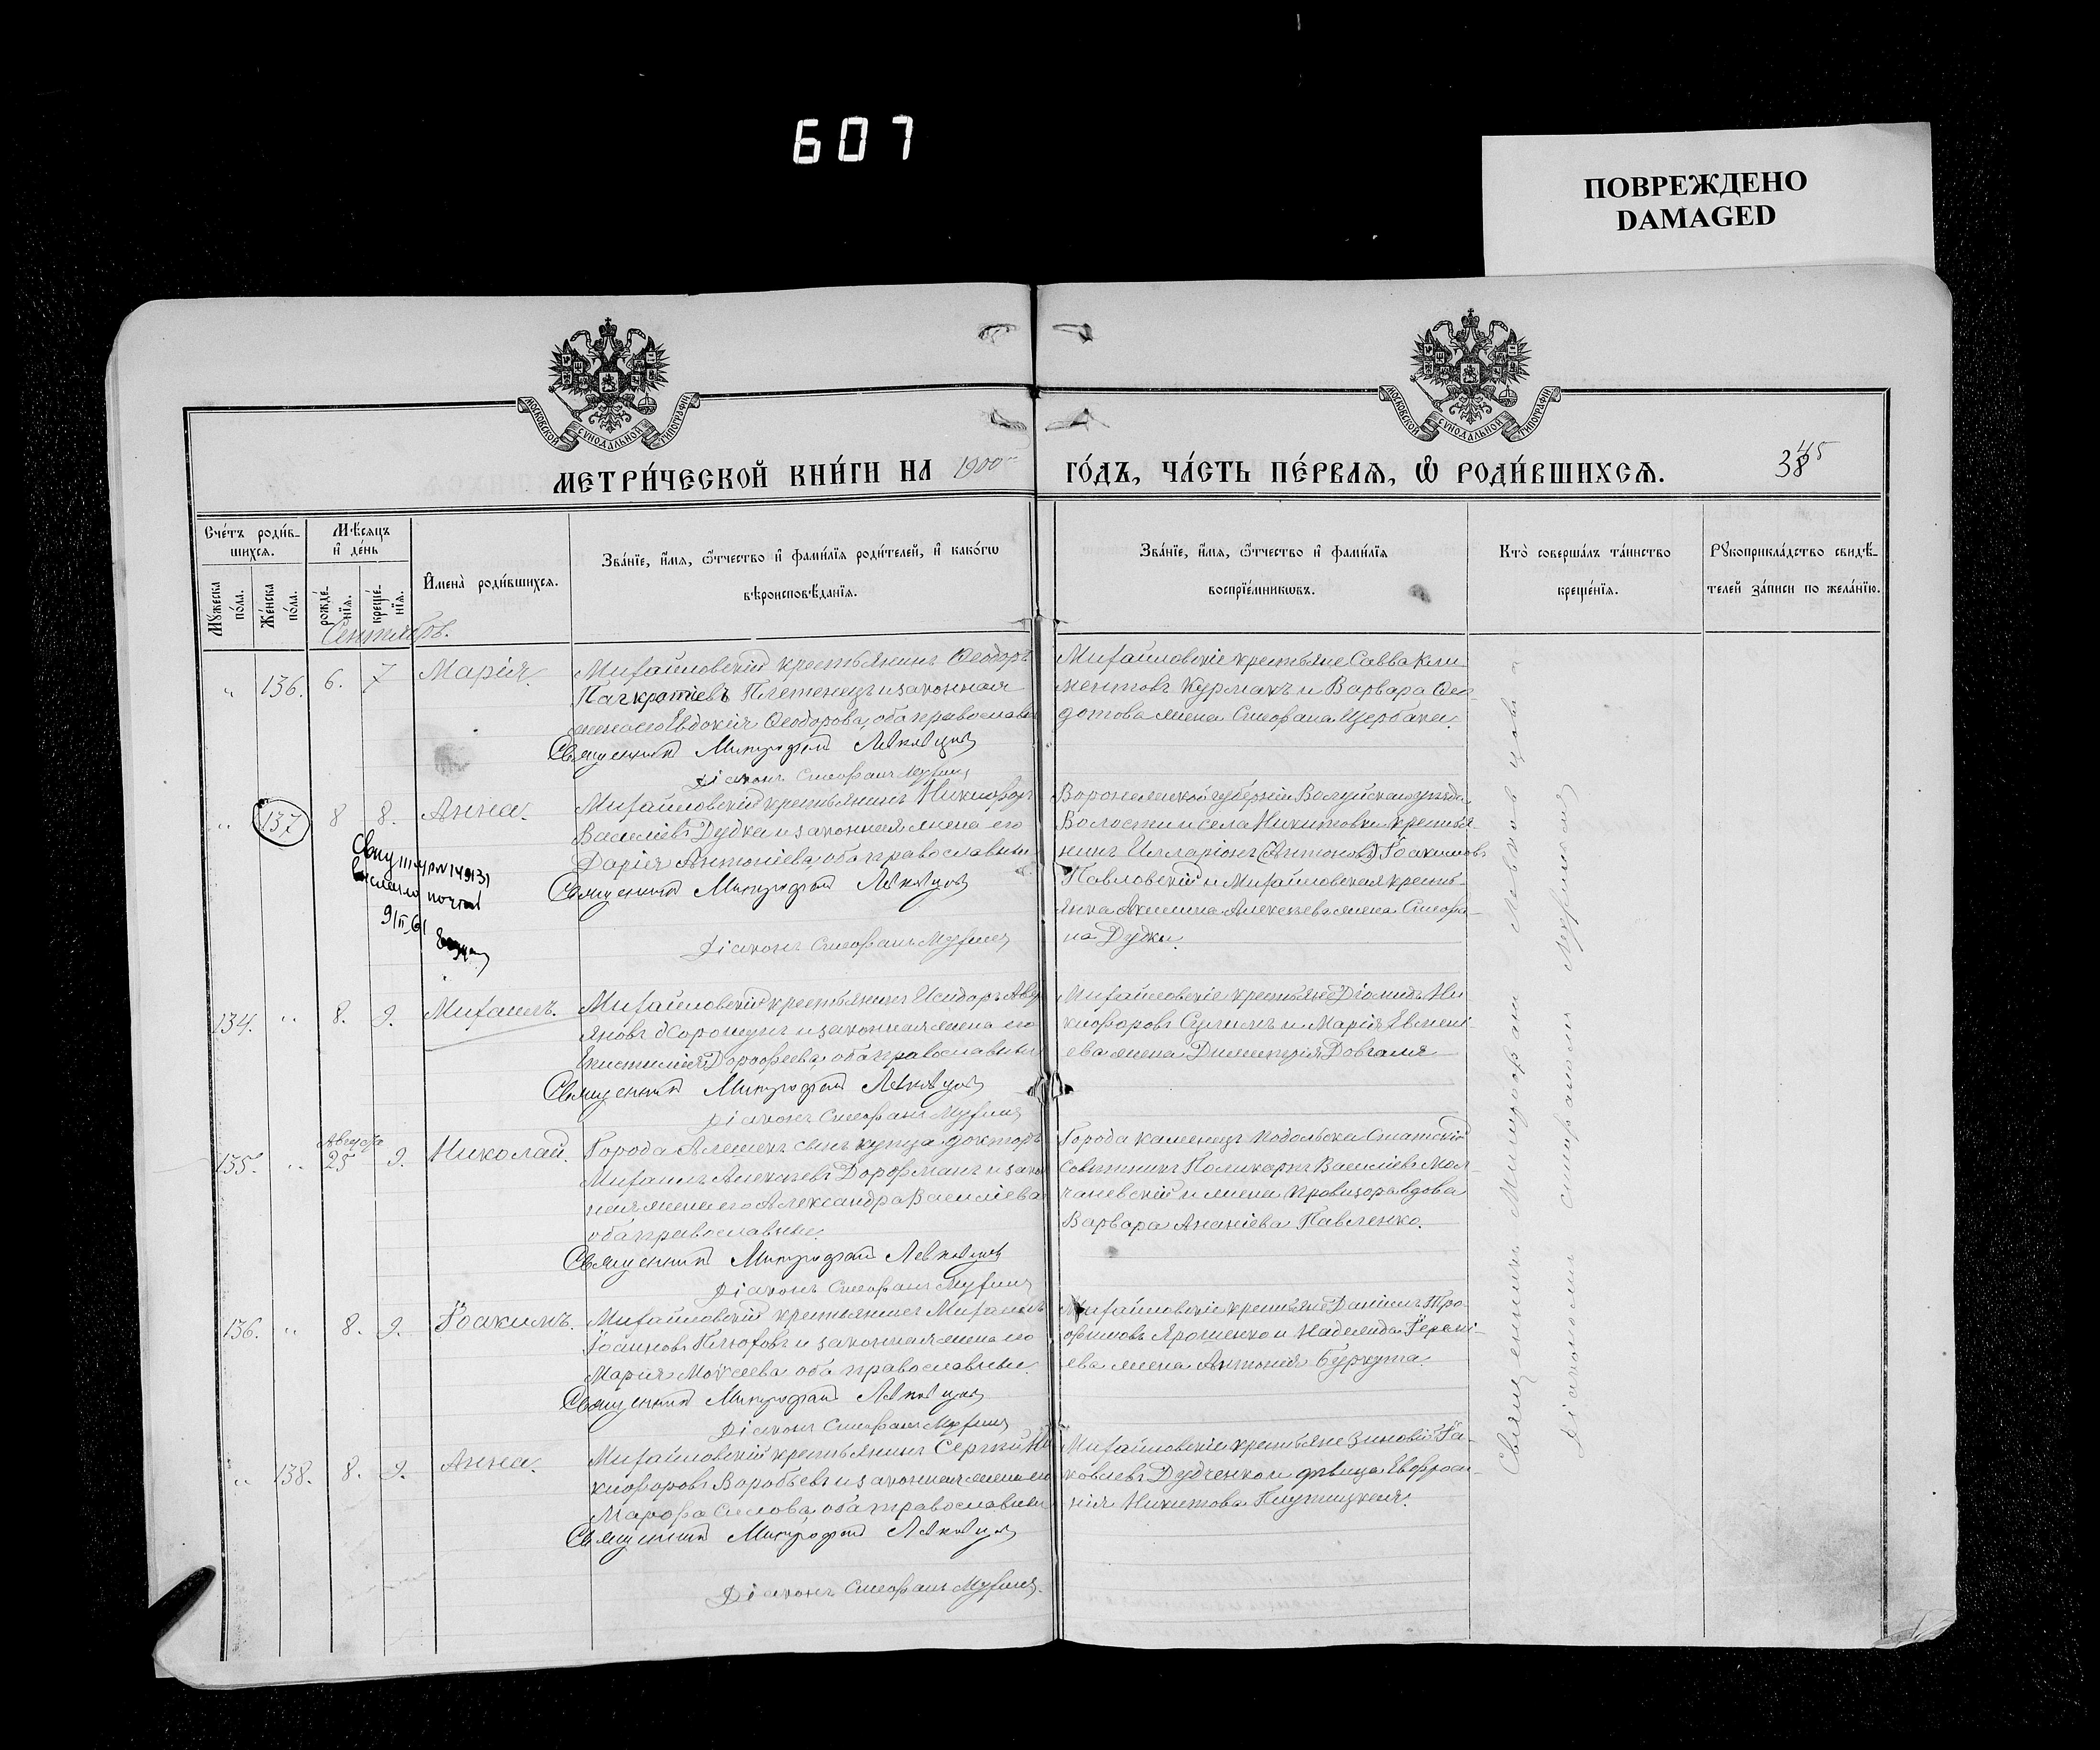 607
ПОВРЕЖДЕНО
DAMAGED
МОСКОВСКОЙ СѴНОДАЛЬНОЙ ТИПОГРАФІИ
МОСКОВСКОЙ СѴНОДАЛЬНОЙ ТИПОГРАФІИ
МЕТРИ́ЧЕСКОЙ КНИ́ГИ НА 1900 ГО́ДЪ, ЧА́СТЬ ПЕ́РВАѦ, Ѡ РОДИ́ВШИХСѦ.
Сче́тъ роди́в-
шихся.
Мѣ́сяцъ
и де́нь
Мꙋ́жеска по́ла.
Же́нска по́ла.
рожде́-
нїя.
креще́-
нїя.
Имена̀ роди́вшихся.
Зва́нїе, и́мя, ѻ҆́тчество и фами́лїя роди́телей, и како́гѡ
вѣроисповѣ́данїя.
Зва́нїе, и́мя, ѻ҆́тчество и фами́лїя
воспрїе́мникѡвъ.
Кто̀ соверша́лъ та́инство
креще́нїя.
Рꙋкоприкла́дство свидѣ́-
телей за́писи по жела́нїю.
Сентябрь.
„ 136. 6. 7 Марія.
Михайловскій крестьянинъ Ѳеодоръ
Панкратіевъ Плетенецъ и законная
жена его Евдокія Ѳеодорова, оба православн
Священникъ Митрофанъ Левковцовъ
Діаконъ Стефанъ
Михайловскіе крестьяне Савва Кли-
ментовъ Курмакъ и Варвара Ѳео-
дотова жена Стефана Щербака.
„ 137 8 8. Анна.
Михайловскій крестьянинъ Никифоръ
Василіевъ Дудка и законная жена его
Дарія Антоніева, оба православные
Священникъ Митрофанъ Левковцовъ
Діаконъ Стефанъ
Воронежской губерніи Валуйскаго уѣзда
Волости и села Никитовки крестья-
нинъ Илларіонъ (Антоновъ) Іоакимовъ
Павловскій и Михайловская кресть-
янка Акилина Алексѣева жена Стефа-
на Дудки.
9/II 61
134. „ 8. 9. Михаилъ.
Михайловскій крестьянинъ Исидоръ Авер
яновъ Хорошунъ и законная жена его
Дорофеева, оба православные
Священникъ Митрофанъ Левковцовъ
Діаконъ Стефанъ
Михайловскіе крестьяне Діомидъ Ни-
кифоровъ и Марія Евгені-
ева жена Димитрія Довгаля
135. „ Августа 25 9. Николай.
Города Алешекъ сынъ купца докторъ
Михаилъ Алексѣевъ Дорфманъ и закон
ная жена его Александра Василіева
оба православные.
Священникъ Митрофанъ Левковцовъ
Діаконъ Стефанъ
Города Каменецъ Подольска Статскій
Совѣтникъ Поликарпъ Василіевъ Мол-
чановскій и жена провизора вдова
Варвара Ананіева Павленко.
136. „ 8. 9. Іоакимъ.
Михайловскій крестьянинъ Михаилъ
Іоанновъ Клюховъ и законная жена его
Марія Моѵсеева оба православные.
Священникъ Митрофанъ Левковцовъ
Діаконъ Стефанъ
Михайловскіе крестьяне Даніилъ Тро-
фимовъ Ярошенко и Надежда Іеремі-
ева жена Антонія Буркута.
„ 138. 8. 9. Анна.
Михайловскій крестьянинъ Сергій Ни
кифоровъ Воробьевъ и законная жена его
Марфа Силова, оба православные
Священникъ Митрофанъ Левковцовъ
Діаконъ Стефанъ
Михайловскіе крестьяне Зиновій Іа-
ковлевъ Дудченко и дѣвица Евфроси-
нія Никитова Плутицкая.
Священникъ Митрофанъ Левковцовъ
Діакономъ Стефаномъ